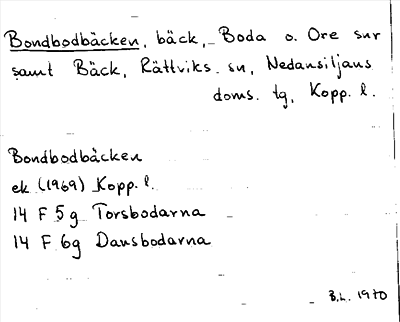 Bondbodbäcken, bäck, Boda o. Ore snr
samt Bäck, Rättviks sn, Nedansiljans
doms. tg, Kopp. l.
Bondbodbäcken
ek (1969) Kopp. l.
14 F 5g Torsbodarna
14 F 6g Dansbodarna
B.L. 1970